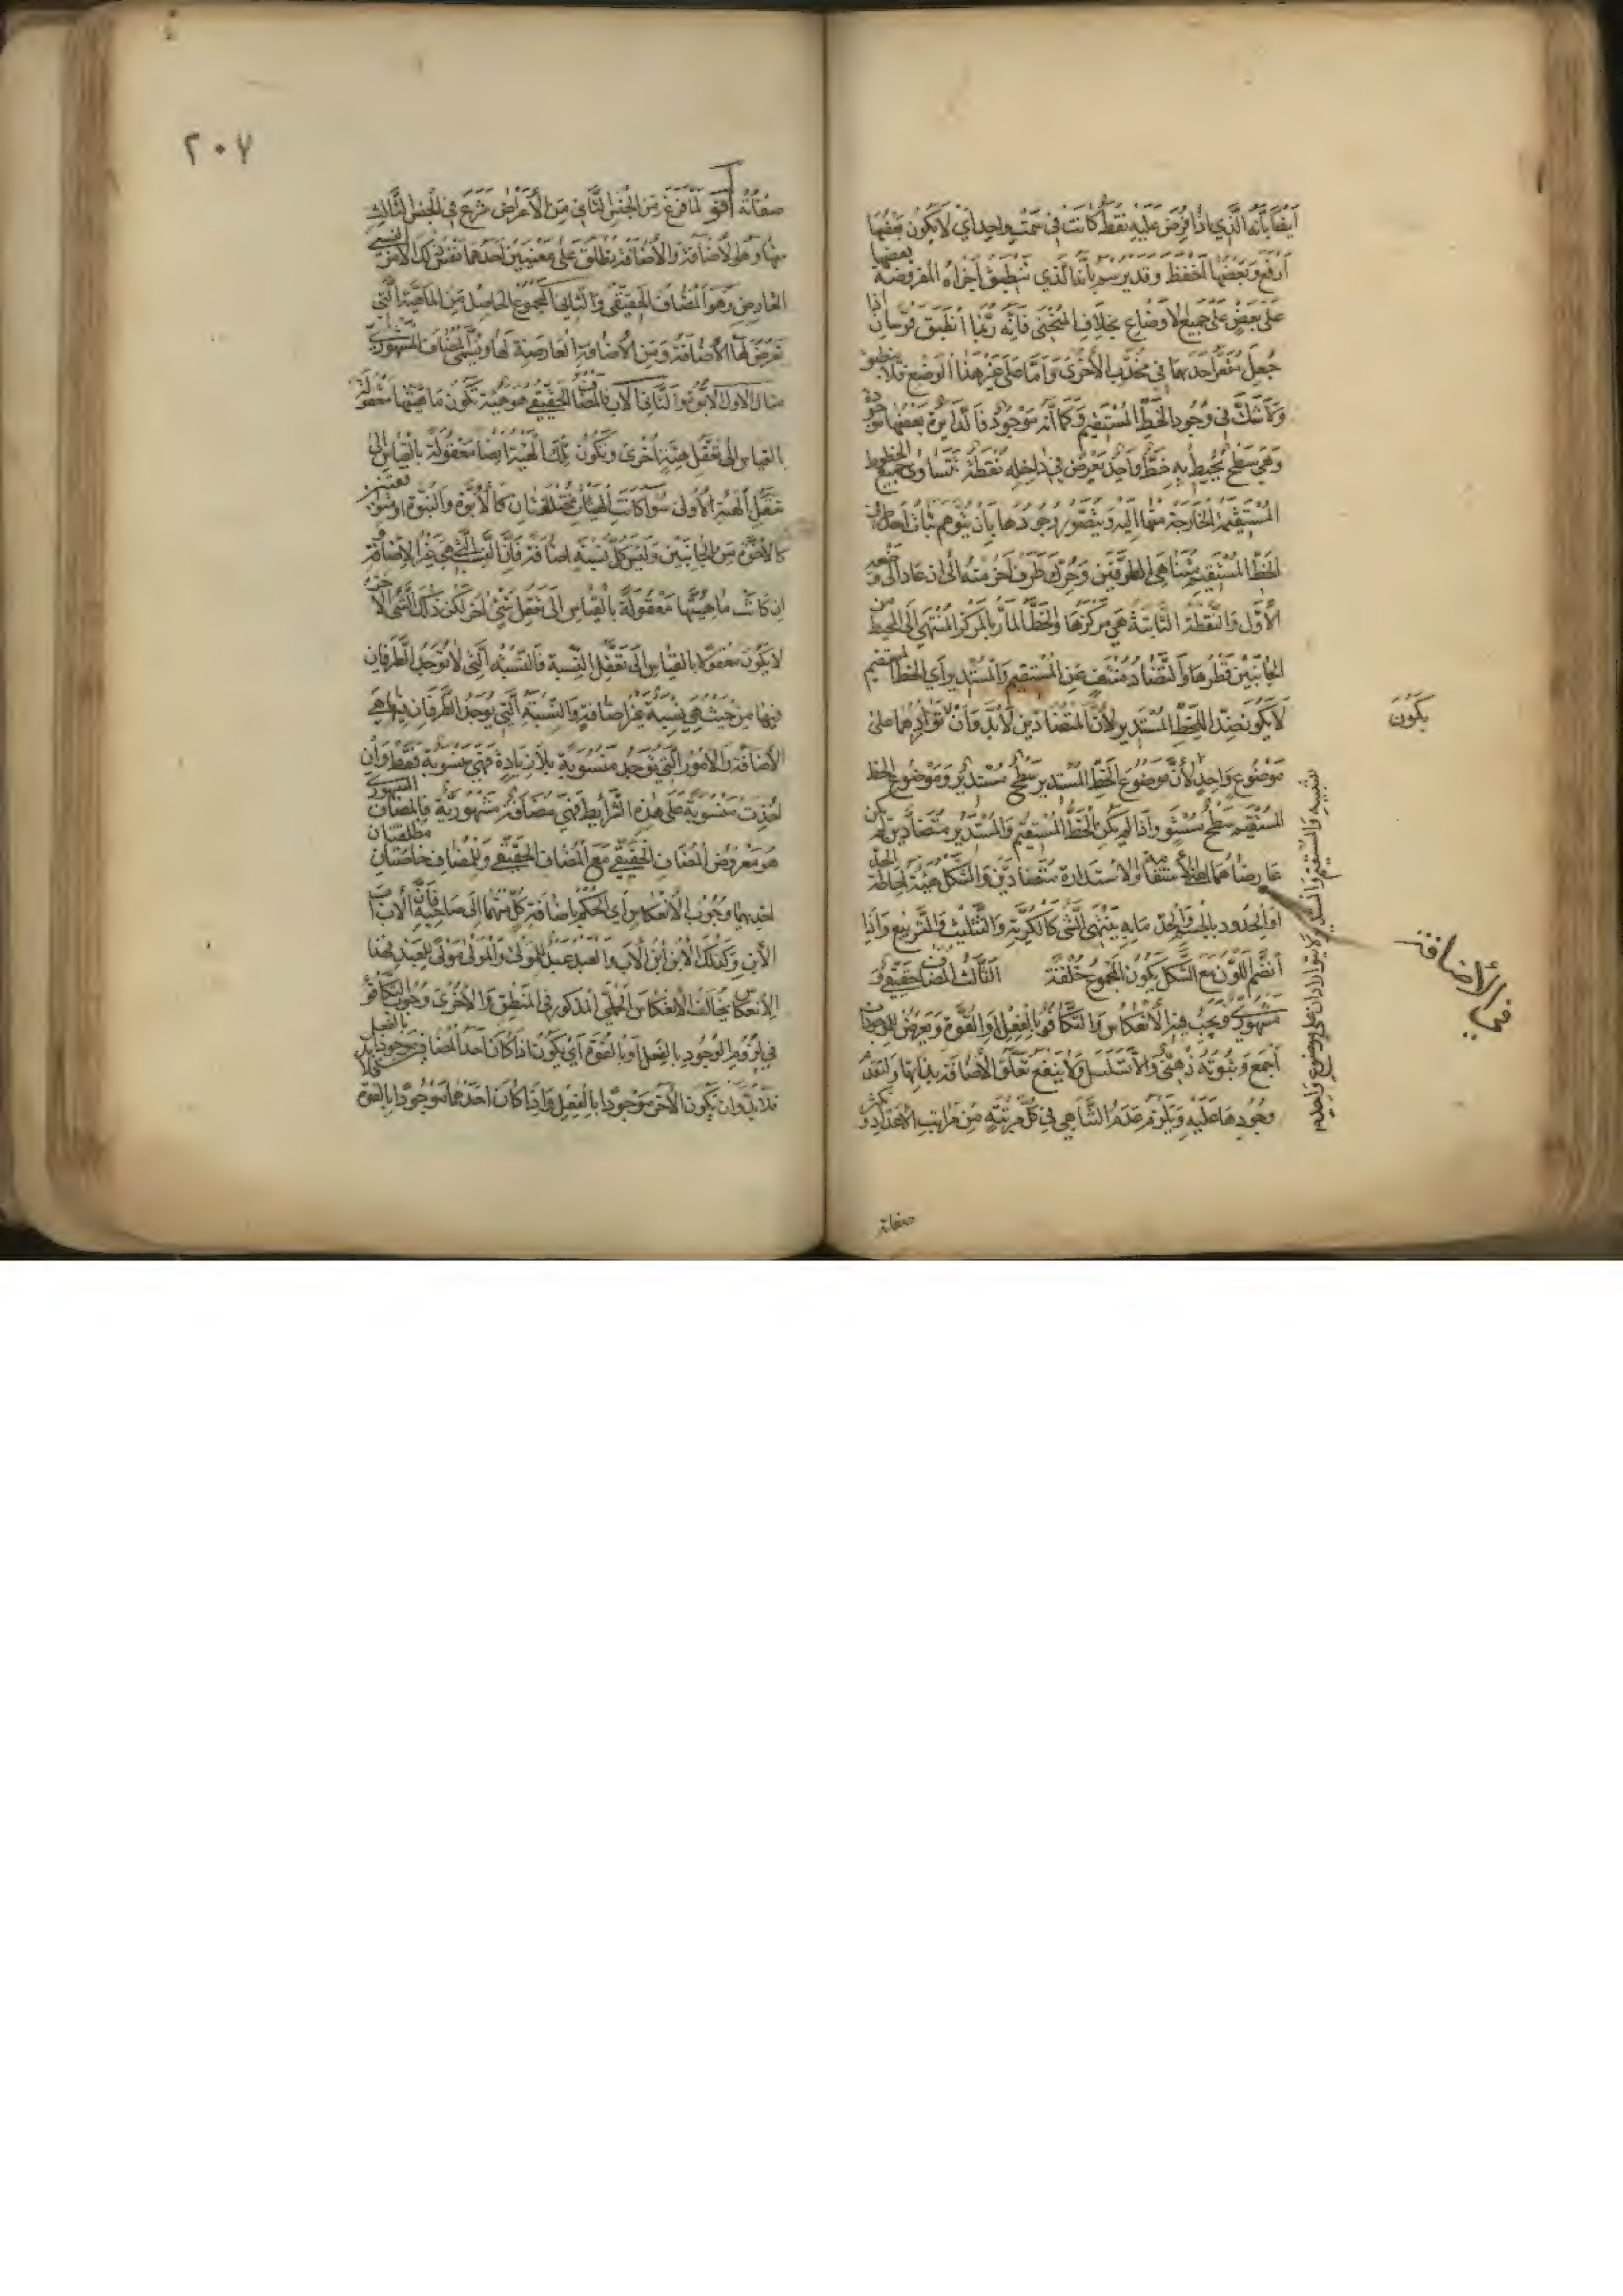 أيضا بأنه الذي اذا فرض عليه نقط كانت في سمت واحد أي لا يكون بعضها
أرفع وبعضها أخفض وقد يرسم بأنه الذي تنطبق أجزاؤه المفروضة بعضها
على بعض على جميع الاوضاع بخلاف المنحني فانه ربما انطبق قوسان اذا
جعل مقعر احدهما في محدب الأخرى وأما على غير هذا الوضع فلا ينطبق
ولا شك في وجود الخط المستقيم وكما أنه موجود فالدائرة بعضها موجودة
وهي سطح يحيط به خط واحد يفرض في داخله نقطة تتساوى جميع الخطوط
المستقيمة الخارجة منها اليه ويتصور وجودها بأن يتوهم ثبات أحد طرفي
الخط المستقيم متناهي الطرفين وحرك طرف آخر منه الى ان عاد الى وضعه
الأول والنقطة الثابتة هي مركزها والخط المار بالمركز المنتهي الى المحيط من
الجانبين قطرها والتضاد منتف عن المستقيم والمستدير أي الخط المستقيم
لا يكون ضدا للخط المستدير لأن المتضادين لا بد وأن تواردهما على
يكون
موضوع واحد لأن موضوع الخط المستدير سطح مستدير وموضوع الخط
المستقيم سطح مستو واذا لم يكن الخط المستقيم والمستدير متضادين لم يكن
عارضاهما الاستقامة والاستدارة متضادين والشكل هيئة احاطة الحد
أو الحدود بالجسم والحد ما به ينتهي الشيء كالكرية والتثليث والتربيع واذا
انضم اللون مع الشكل يكون المجموع خلقة الثالث المضاف حقيقي و
في الاضافة
مشهوري ويجب فيه الانعكاس والتكافؤ بالفعل أو القوة ويعرض للموجودات
أجمع وثبوته ذهني والا تسلسل ولا ينفع تعلق الاضافة بذاتها ولتقدم
وجودها عليه ويلزم عدم التناهي في كل مرتبة من مراتب الأعداد و
صفاته
٢٠٧
صفاته أقول لما فرغ من الجنس الثاني من الأعراض شرع في الجنس الثالث
منها وهو الاضافة والاضافة تطلق على معنيين أحدهما نفس ذلك الأمر النسبي
العارض وهو المضاف الحقيقي والثاني المجموع الحاصل من الماهية التي
تعرض لها الاضافة ومن الاضافة العارضة لها ويسمى المضاف المشهوري
مثال الأول الأبوة والثاني الأب فالمضاف الحقيقي هو هيئة تكون ماهيتها معقولة
بالقياس الى تعقل هيئة أخرى وتكون تلك الهيئة أيضا معقولة بالقياس الى
تعقل الهيئة الأولى سواء كانت الهيئتان مختلفتان كالأبوة والبنوة أو متوافقتين
كالأخوة من الجانبين وليس كل نسبة اضافة فان النسب التي هي غير الاضافة
ان كانت ماهيتها معقولة بالقياس الى تعقل شيء آخر لكن ذلك الشيء الآخر
لا يكون معقولا بالقياس الى تعقل النسبة فالنسبة التي لا توجد الطرفان
فيها من حيث هي نسبة غير اضافة والنسبة التي يوجد الطرفان فيها هي
الاضافة والأمور التي توجد منسوبة بلا زيادة فهي منسوبة فقط وان
أخذت منسوبة على هذه الشرايط فهي مضافة مشهورية فالمضاف المشهوري
هو معروض المضاف الحقيقي مع المضاف الحقيقي وللمضاف خاصتان مطلقتان
احديهما وجوب الانعكاس أي الحكم باضافة كل منهما الى صاحبه فان الأب أب
الابن وكذلك الابن ابن الأب والعبد عبد للمولى والمولى مولى للعبد فهذا
الانعكاس يخالف الانعكاس الحملي المذكور في المنطق والأخرى وجوب التكافؤ
في لزوم الوجود بالفعل أو بالقوة أي يكون اذا كان أحد المضافين موجودا بالفعل
فلا بد وان يكون الآخر موجودا بالفعل واذا كان احدهما موجودا بالقوة